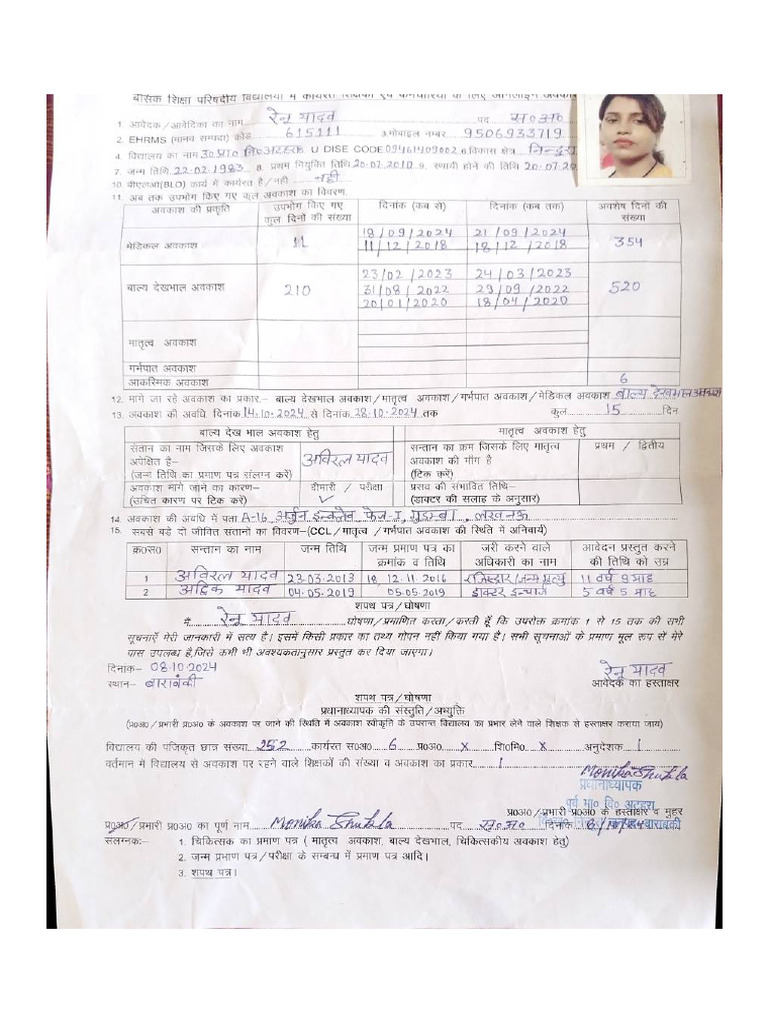 बेसिक शिक्षा परिषदीय विद्यालयों में कार्यरत शिक्षकों एवं कर्मचारियों के लिए ऑनलाइन अवकाश
1. आवेदक/आवेदिका का नाम रेनू यादव पद स०अ०
2. EHRMS (मानव सम्पदा) कोड 615111 3.मोबाइल नम्बर 9506933719
4. विद्यालय का नाम उ०प्रा० वि० अटहरा 5. U DISE CODE 09461409002 6.विकास क्षेत्र
7. जन्म तिथि 22-02-1983 8. प्रथम नियुक्ति तिथि 20-07-2010 9. स्थायी होने की तिथि 20-07-20
10. बीएलओ(BLO) कार्य में कार्यरत है/नहीं नहीं
11. अब तक उपभोग किए गए कुल अवकाश का विवरण.
अवकाश की प्रकृति उपभोग किए गए कुल दिनों की संख्या दिनांक (कब से) दिनांक (कब तक) अवशेष दिनों की संख्या
मेडिकल अवकाश 11 18/09/2024 21/09/2024 354
11/12/2018 18/12/2018
बाल्य देखभाल अवकाश 210 23/02/2023 24/03/2023 520
31/08/2022 29/09/2022
20/01/2020 18/04/2020
मातृत्व अवकाश
गर्भपात अवकाश
आकस्मिक अवकाश 6
12. मांगे जा रहे अवकाश का प्रकार.– बाल्य देखभाल अवकाश/मातृत्व अवकाश/गर्भपात अवकाश/मेडिकल अवकाश बाल्य देखभाल अवकाश
13. अवकाश की अवधि दिनांक 14-10-2024 से दिनांक 28-10-2024 तक कुल 15 दिन
बाल्य देख भाल अवकाश हेतु मातृत्व अवकाश हेतु
संतान का नाम जिसके लिए अवकाश अपेक्षित है– (जन्म तिथि का प्रमाण पत्र संलग्न करें) अविरल यादव सन्तान का क्रम जिसके लिए मातृत्व अवकाश की माँग है (टिक करें) प्रथम / द्वितीय
अवकाश मांगे जाने का कारण– (उचित कारण पर टिक करें) बीमारी / परीक्षा ✓ प्रसव की संभावित तिथि– (डाक्टर की सलाह के अनुसार)
14. अवकाश की अवधि में पता A-16, अर्जुन इन्क्लेव फेज-I, गुडम्बा, लखनऊ
15. सबसे बड़े दो जीवित संतानों का विवरण–(CCL/मातृत्व /गर्भपात अवकाश की स्थिति में अनिवार्य)
क्र०स० सन्तान का नाम जन्म तिथि जन्म प्रमाण पत्र का क्रमांक व तिथि जरी करने वाले अधिकारी का नाम आवेदन प्रस्तुत करने की तिथि को उम्र
1 अविरल यादव 23-03-2013 18, 12.11.2016 रजिस्ट्रार/जन्म मृत्यु 11 वर्ष 9 माह
2 अद्विक यादव 04-05-2019 05-05-2019 डाक्टर इन्चार्ज 5 वर्ष 5 माह
शपथ पत्र/घोषणा
मैं रेनू यादव घोषणा/प्रमाणित करता/करती हूँ कि उपरोक्त क्रमांक 1 से 15 तक की सभी
सूचनाएँ मेरी जानकारी में सत्य है। इसमें किसी प्रकार का तथ्य गोपन नहीं किया गया है। सभी सूचनाओं के प्रमाण मूल रूप से मेरे
पास उपलब्ध है,जिसे कभी भी अवश्यकतानुसार प्रस्तुत कर दिया जाएगा।
दिनाक– 08.10.2024 रेनू यादव
स्थान– बाराबंकी आवेदक का हस्ताक्षर
शपथ पत्र/घोषणा
प्रधानाध्यापक की संस्तुति/अभ्युक्ति
(प्र०अ०/प्रभारी प्र०अ० के अवकाश पर जाने की स्थिति में अवकाश स्वीकृति के उपरान्त विद्यालय का प्रभार लेने वाले शिक्षक से हस्ताक्षर कराया जाय)
विद्यालय की पंजिकृत छात्र संख्या 252 कार्यरत स०अ० 6 प्र०अ० x शि०मि० x अनुदेशक 1
वर्तमान में विद्यालय से अवकाश पर रहने वाले शिक्षकों की संख्या व अवकाश का प्रकार 1
Monika Shukla
प्रधानाध्यापक
पूर्व मा० वि० अटहरा
प्र०अ०/प्रभारी प्र०अ० के हस्ताक्षर व मुहर
प्र०अ०/प्रभारी प्र०अ० का पूर्ण नाम Monika Shukla पद स०अ० दिनांक बाराबंकी
संलग्नक:– 1. चिकित्सक का प्रमाण पत्र ( मातृत्व अवकाश, बाल्य देखभाल, चिकित्सकीय अवकाश हेतु)
2. जन्म प्रभाण पत्र/परीक्षा के सम्बन्ध में प्रमाण पत्र आदि।
3. शपथ पत्र।